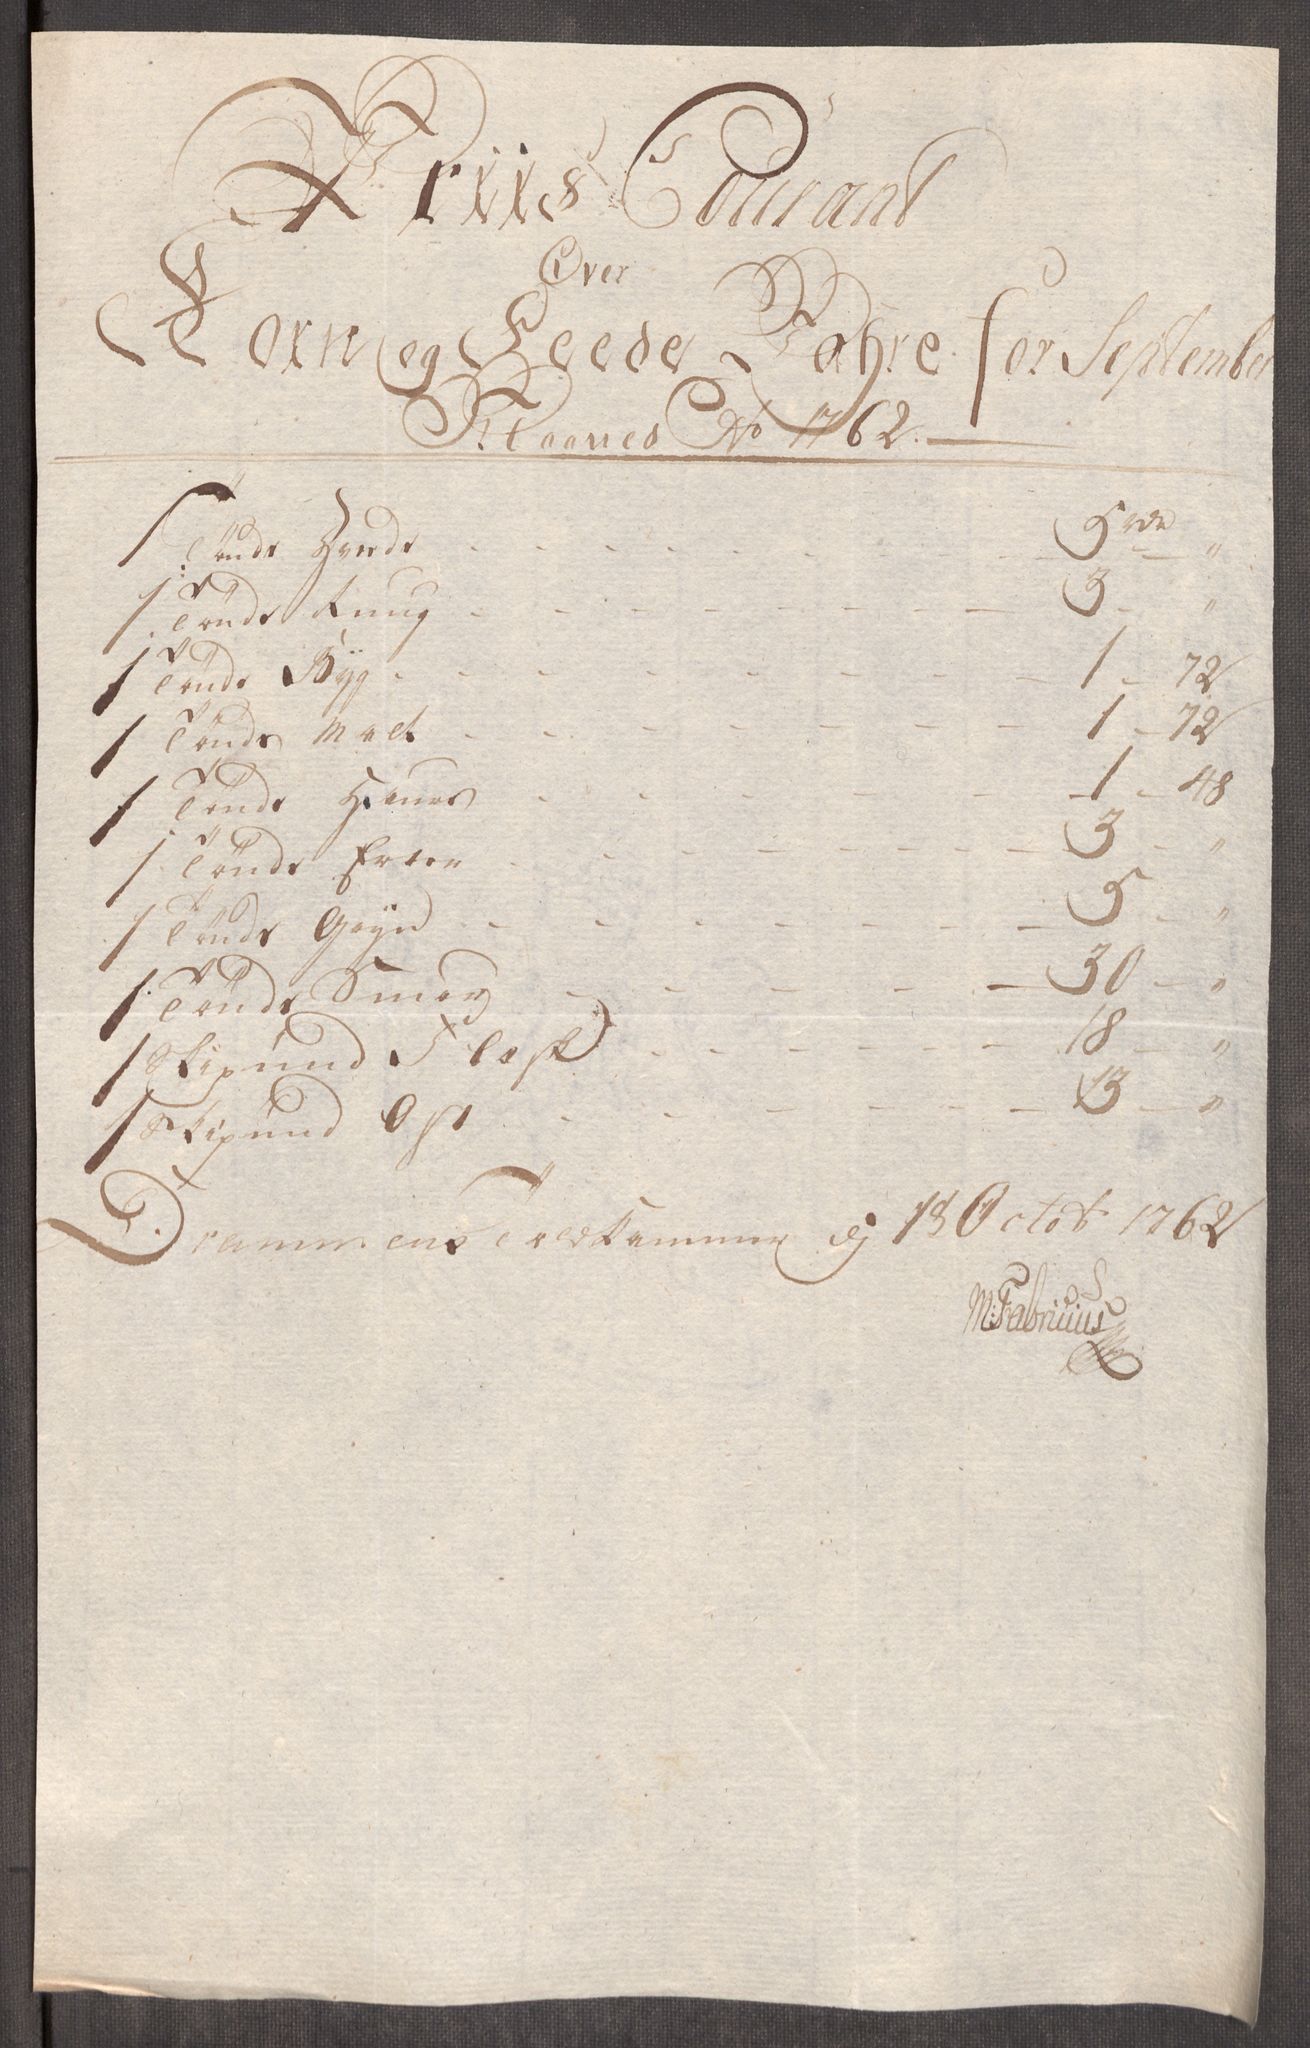 Priis Courant
Over
Korn og Feede Vahre for September
Maaned Ao 1762.
1 Tønde Hvede - - - 5 rdr - "
1 Tønde Rüug - - - 3 - "
1 Tønde Byg - - - 1 - 72
1 Tønde Malt - - - 1 - 72
1 Tønde Haver - - - 1 - 48
1 Tønde Erter - - - 3 - "
1 Tønde Gryn - - - 5 - "
1 Tønde Smør - - - 30 - "
1 Skipund Flesk - - - 18 - "
1 Skipund Ost - - - 13 - "
Drammens Toldkammer dj 1st Octobr 1762
M: Fabricius